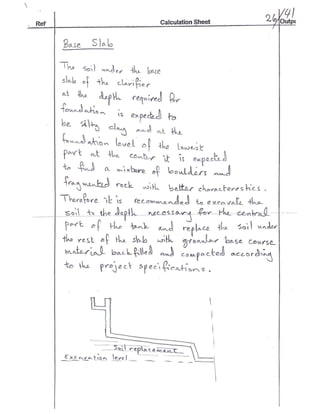 Ref
Calculation Sheet
26/41
Outpu
Base Slab
The soil under the base
slab of the clarifier
at the depth required for
foundation is expected to
be silty clay and at the
foundation level of the lowest
part at the center it is expected
to find a mixture of boulders and
fragmented rock with better characterstics.
Therefore it is recommended to excavate the
soil to the depth necessary for the central
part of the tank and replace the soil under
the rest of the slab with granular base course
material backfilled and compacted according
to the project specifications.
Soil replacement
Excavation level